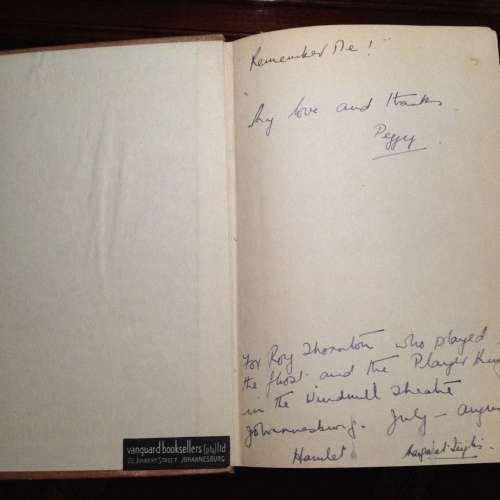 "Remember Me!"
My love and thanks
Peggy
For Roy Thornton who played
the ghost and the Player King
in the Windmill Theatre
Johannesburg. July – Augus
Hamlet
Margaret
vanguard booksellers (pty) ltd
JOUBERT STREET JOHANNESBURG